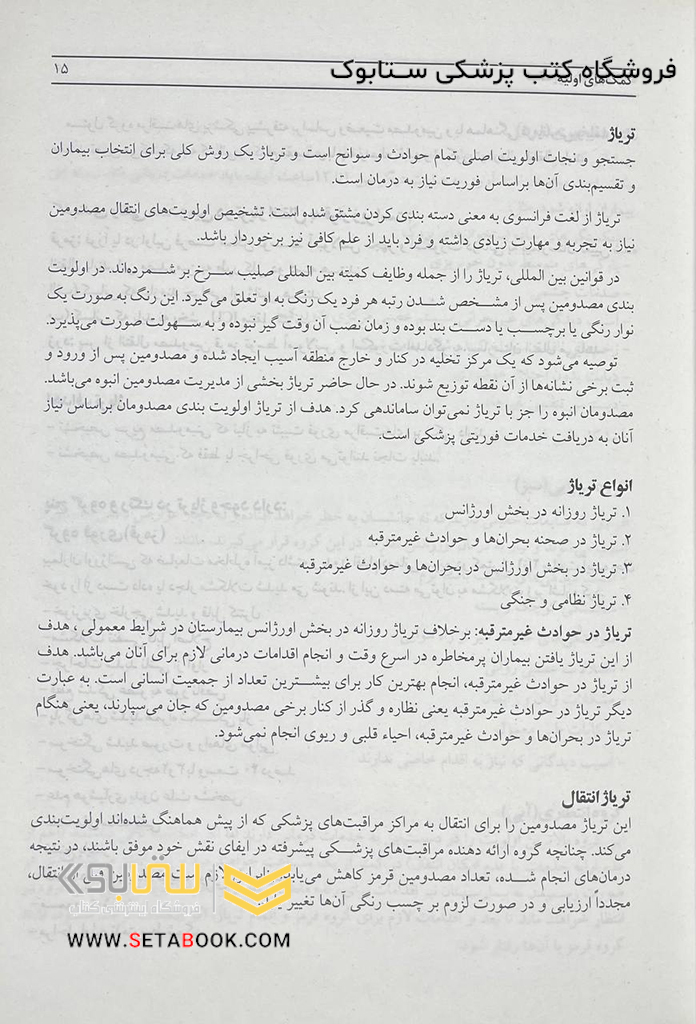 فروشگاه کتب پزشکی ستابوک
کمک‌های اولیه
۱۵
تریاژ
جستجو و نجات اولویت اصلی تمام حوادث و سوانح است و تریاژ یک روش کلی برای انتخاب بیماران
و تقسیم‌بندی آن‌ها براساس فوریت نیاز به درمان است.
تریاژ از لغت فرانسوی به معنی دسته بندی کردن مشتق شده است. تشخیص اولویت‌های انتقال مصدومین
نیاز به تجربه و مهارت زیادی داشته و فرد باید از علم کافی نیز برخوردار باشد.
در قوانین بین المللی، تریاژ را از جمله وظایف کمیته بین المللی صلیب سرخ بر شمرده‌اند. در اولویت
بندی مصدومین پس از مشخص شدن رتبه هر فرد یک رنگ به او تعلق می‌گیرد. این رنگ به صورت یک
نوار رنگی یا برچسب یا دست بند بوده و زمان نصب آن وقت گیر نبوده و به سهولت صورت می‌پذیرد.
توصیه می‌شود که یک مرکز تخلیه در کنار و خارج منطقه آسیب ایجاد شده و مصدومین پس از ورود و
ثبت برخی نشانه‌ها از آن نقطه توزیع شوند. در حال حاضر تریاژ بخشی از مدیریت مصدومین انبوه می‌باشد.
مصدومان انبوه را جز با تریاژ نمی‌توان ساماندهی کرد. هدف از تریاژ اولویت بندی مصدومان براساس نیاز
آنان به دریافت خدمات فوریتی پزشکی است.
انواع تریاژ
۱. تریاژ روزانه در بخش اورژانس
۲. تریاژ در صحنه بحران‌ها و حوادث غیرمترقبه
۳. تریاژ در بخش اورژانس در بحران‌ها و حوادث غیرمترقبه
۴. تریاژ نظامی و جنگی
تریاژ در حوادث غیرمترقبه: برخلاف تریاژ روزانه در بخش اورژانس بیمارستان در شرایط معمولی ، هدف
از این تریاژ یافتن بیماران پرمخاطره در اسرع وقت و انجام اقدامات درمانی لازم برای آنان می‌باشد. هدف
از تریاژ در حوادث غیرمترقبه، انجام بهترین کار برای بیشترین تعداد از جمعیت انسانی است. به عبارت
دیگر تریاژ در حوادث غیرمترقبه یعنی نظاره و گذر از کنار برخی مصدومین که جان می‌سپارند، یعنی هنگام
تریاژ در بحران‌ها و حوادث غیرمترقبه، احیاء قلبی و ریوی انجام نمی‌شود.
تریاژ انتقال
این تریاژ مصدومین را برای انتقال به مراکز مراقبت‌های پزشکی که از پیش هماهنگ شده‌اند اولویت‌بندی
می‌کند. چنانچه گروه ارائه دهنده مراقبت‌های پزشکی پیشرفته در ایفای نقش خود موفق باشند، در نتیجه
درمان‌های انجام شده، تعداد مصدومین قرمز کاهش می‌یابد. لازم است مصدومین قبل از انتقال،
مجدداً ارزیابی و در صورت لزوم بر چسب رنگی آن‌ها تغییر یابد.
ستابوک
فروشگاه اینترنتی کتاب
WWW.SETABOOK.COM